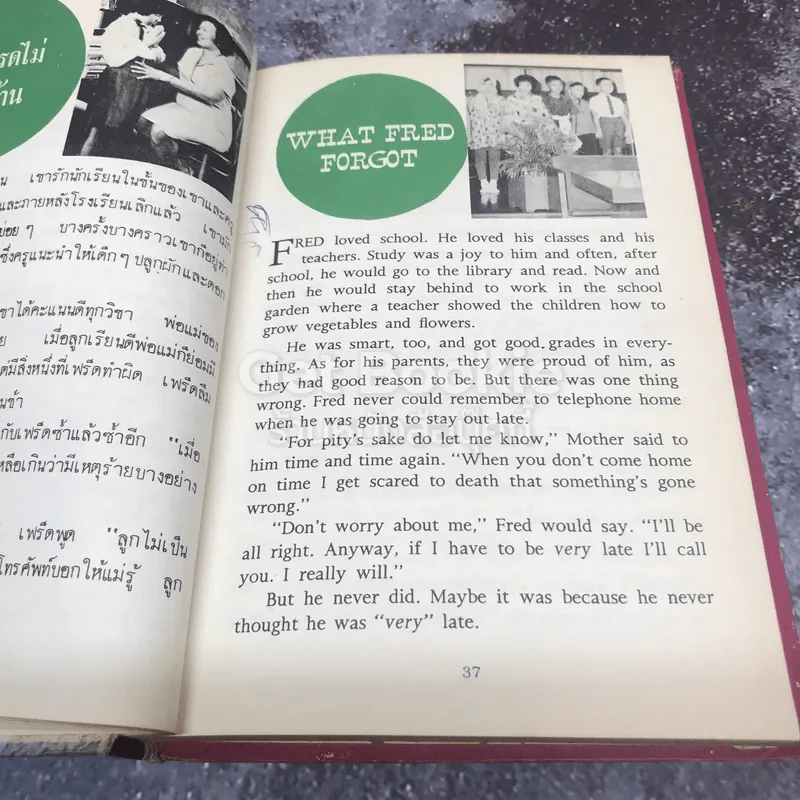 รดไม่
น เขารักนักเรียนในชั้นของเขาและครู
และภายหลังโรงเรียนเลิกแล้ว เขามัก
บ่อย ๆ บางครั้งบางคราวเขาก็อยู่ทำ
ซึ่งครูแนะนำให้เด็ก ๆ ปลูกผักและดอก
ขาได้คะแนนดีทุกวิชา พ่อแม่ของ
ย เมื่อลูกเรียนดีพ่อแม่ก็ย่อมมี
ต่มีสิ่งหนึ่งที่เฟร็ดทำผิด เฟร็ดลืม
นช้า
กับเฟร็ดซ้ำแล้วซ้ำอีก "เมื่อ
หลือเกินว่ามีเหตุร้ายบางอย่าง
เฟร็ดพูด "ลูกไม่เป็น
โทรศัพท์บอกให้แม่รู้ ลูก
WHAT FRED
FORGOT
FRED loved school. He loved his classes and his
teachers. Study was a joy to him and often, after
school, he would go to the library and read. Now and
then he would stay behind to work in the school
garden where a teacher showed the children how to
grow vegetables and flowers.
He was smart, too, and got good grades in every-
thing. As for his parents, they were proud of him, as
they had good reason to be. But there was one thing
wrong. Fred never could remember to telephone home
when he was going to stay out late.
“For pity's sake do let me know,” Mother said to
him time and time again. “When you don't come home
on time I get scared to death that something's gone
wrong.”
“Don't worry about me,” Fred would say. “I'll be
all right. Anyway, if I have to be very late I'll call
you. I really will.”
But he never did. Maybe it was because he never
thought he was “very” late.
37
Cat Bookie